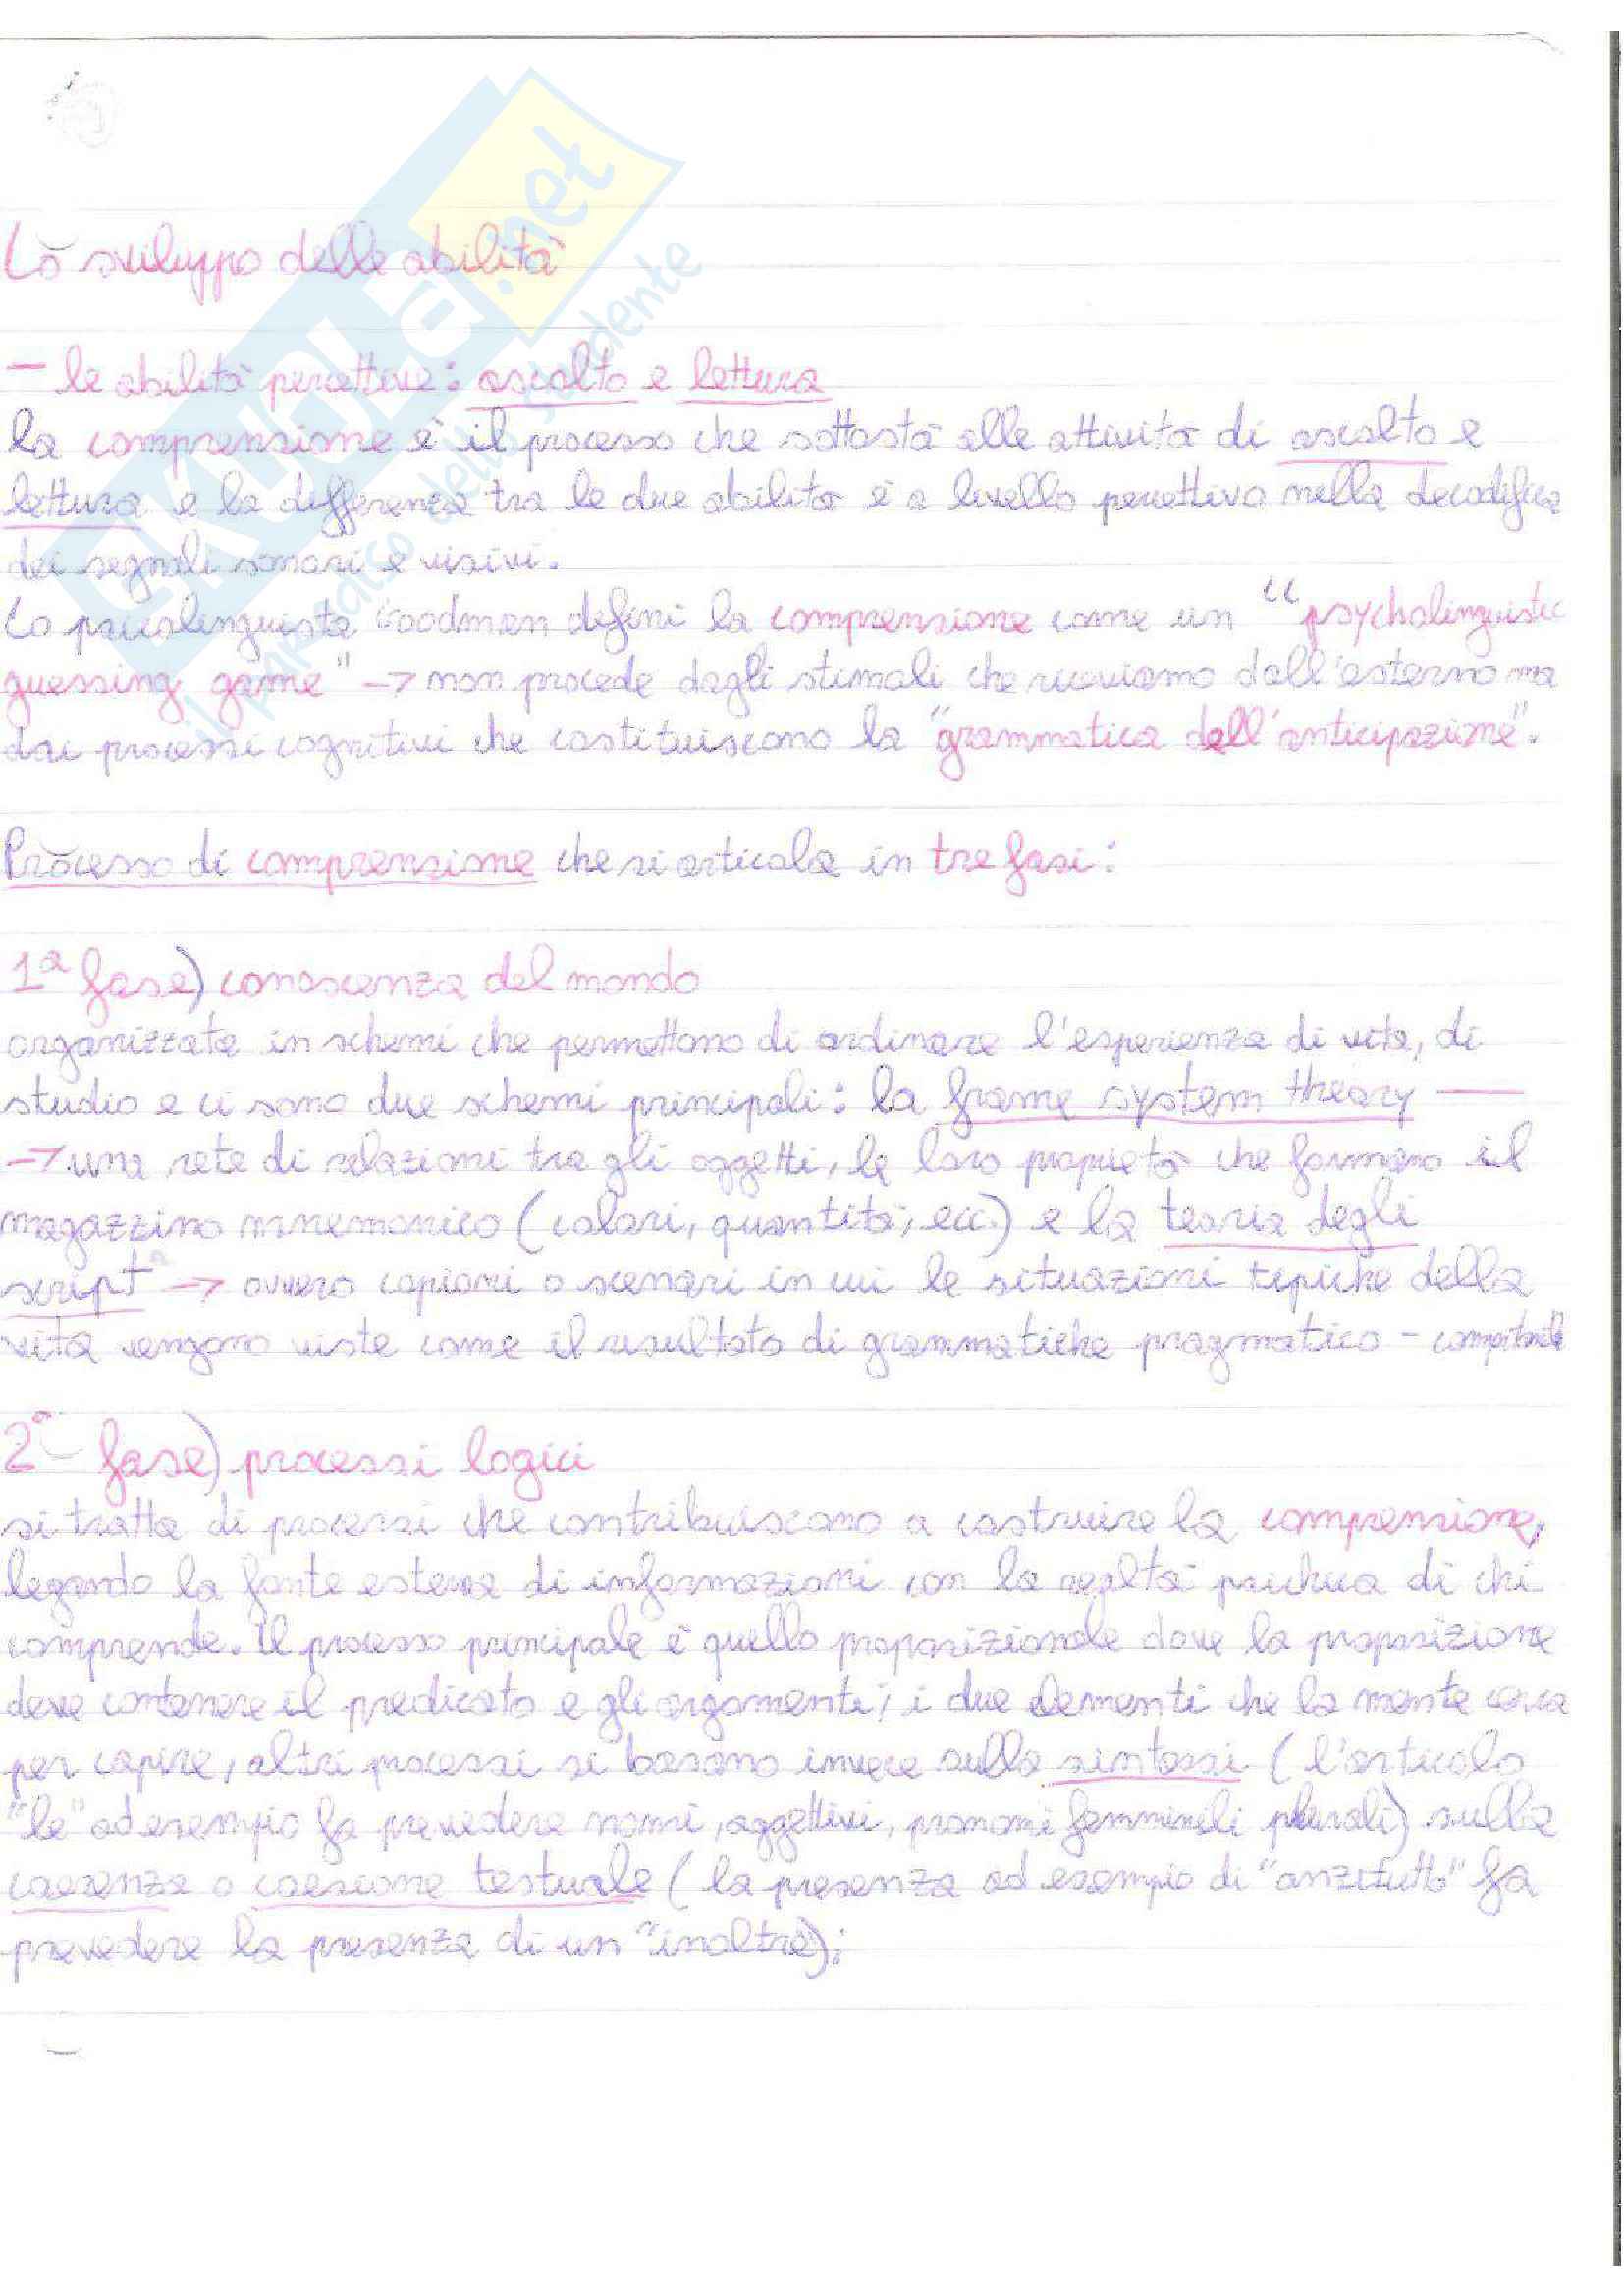 Lo sviluppo delle abilità
- le abilità percettive: ascolto e lettura
la comprensione è il processo che sottostà alle attività di ascolto e
lettura e la differenza tra le due abilità è a livello percettivo nella decodifica
dei segnali sonori e visivi.
Lo psicolinguista Goodman definì la comprensione come un "psycholinguistic
guessing game" -> non procede dagli stimoli che riceviamo dall'esterno ma
dai processi cognitivi che costituiscono la "grammatica dell'anticipazione".
Processo di comprensione che si articola in tre fasi:
1ª fase) conoscenza del mondo
organizzata in schemi che permettono di ordinare l'esperienza di vita, di
studio e ci sono due schemi principali: la frame system theory —
-> una rete di relazioni tra gli oggetti, le loro proprietà che formano il
magazzino mnemonico (colori, quantità, ecc.) e la teoria degli
script -> ovvero copioni o scenari in cui le situazioni tipiche della
vita vengono viste come il risultato di grammatiche pragmatico -
2ª fase) processi logici
si tratta di processi che contribuiscono a costruire la comprensione,
legando la fonte esterna di informazioni con la realtà psichica di chi
comprende. Il processo principale è quello proposizionale dove la proposizione
deve contenere il predicato e gli argomenti; i due elementi che la mente cerca
per capire, altri processi si basano invece sulla sintassi (l'articolo
"le" ad esempio fa prevedere nomi, aggettivi, pronomi femminili plurali) sulla
coerenza o coesione testuale (la presenza ad esempio di "anzitutto" fa
prevedere la presenza di un "inoltre);
EKUOLA.net
il paradiso dello studente